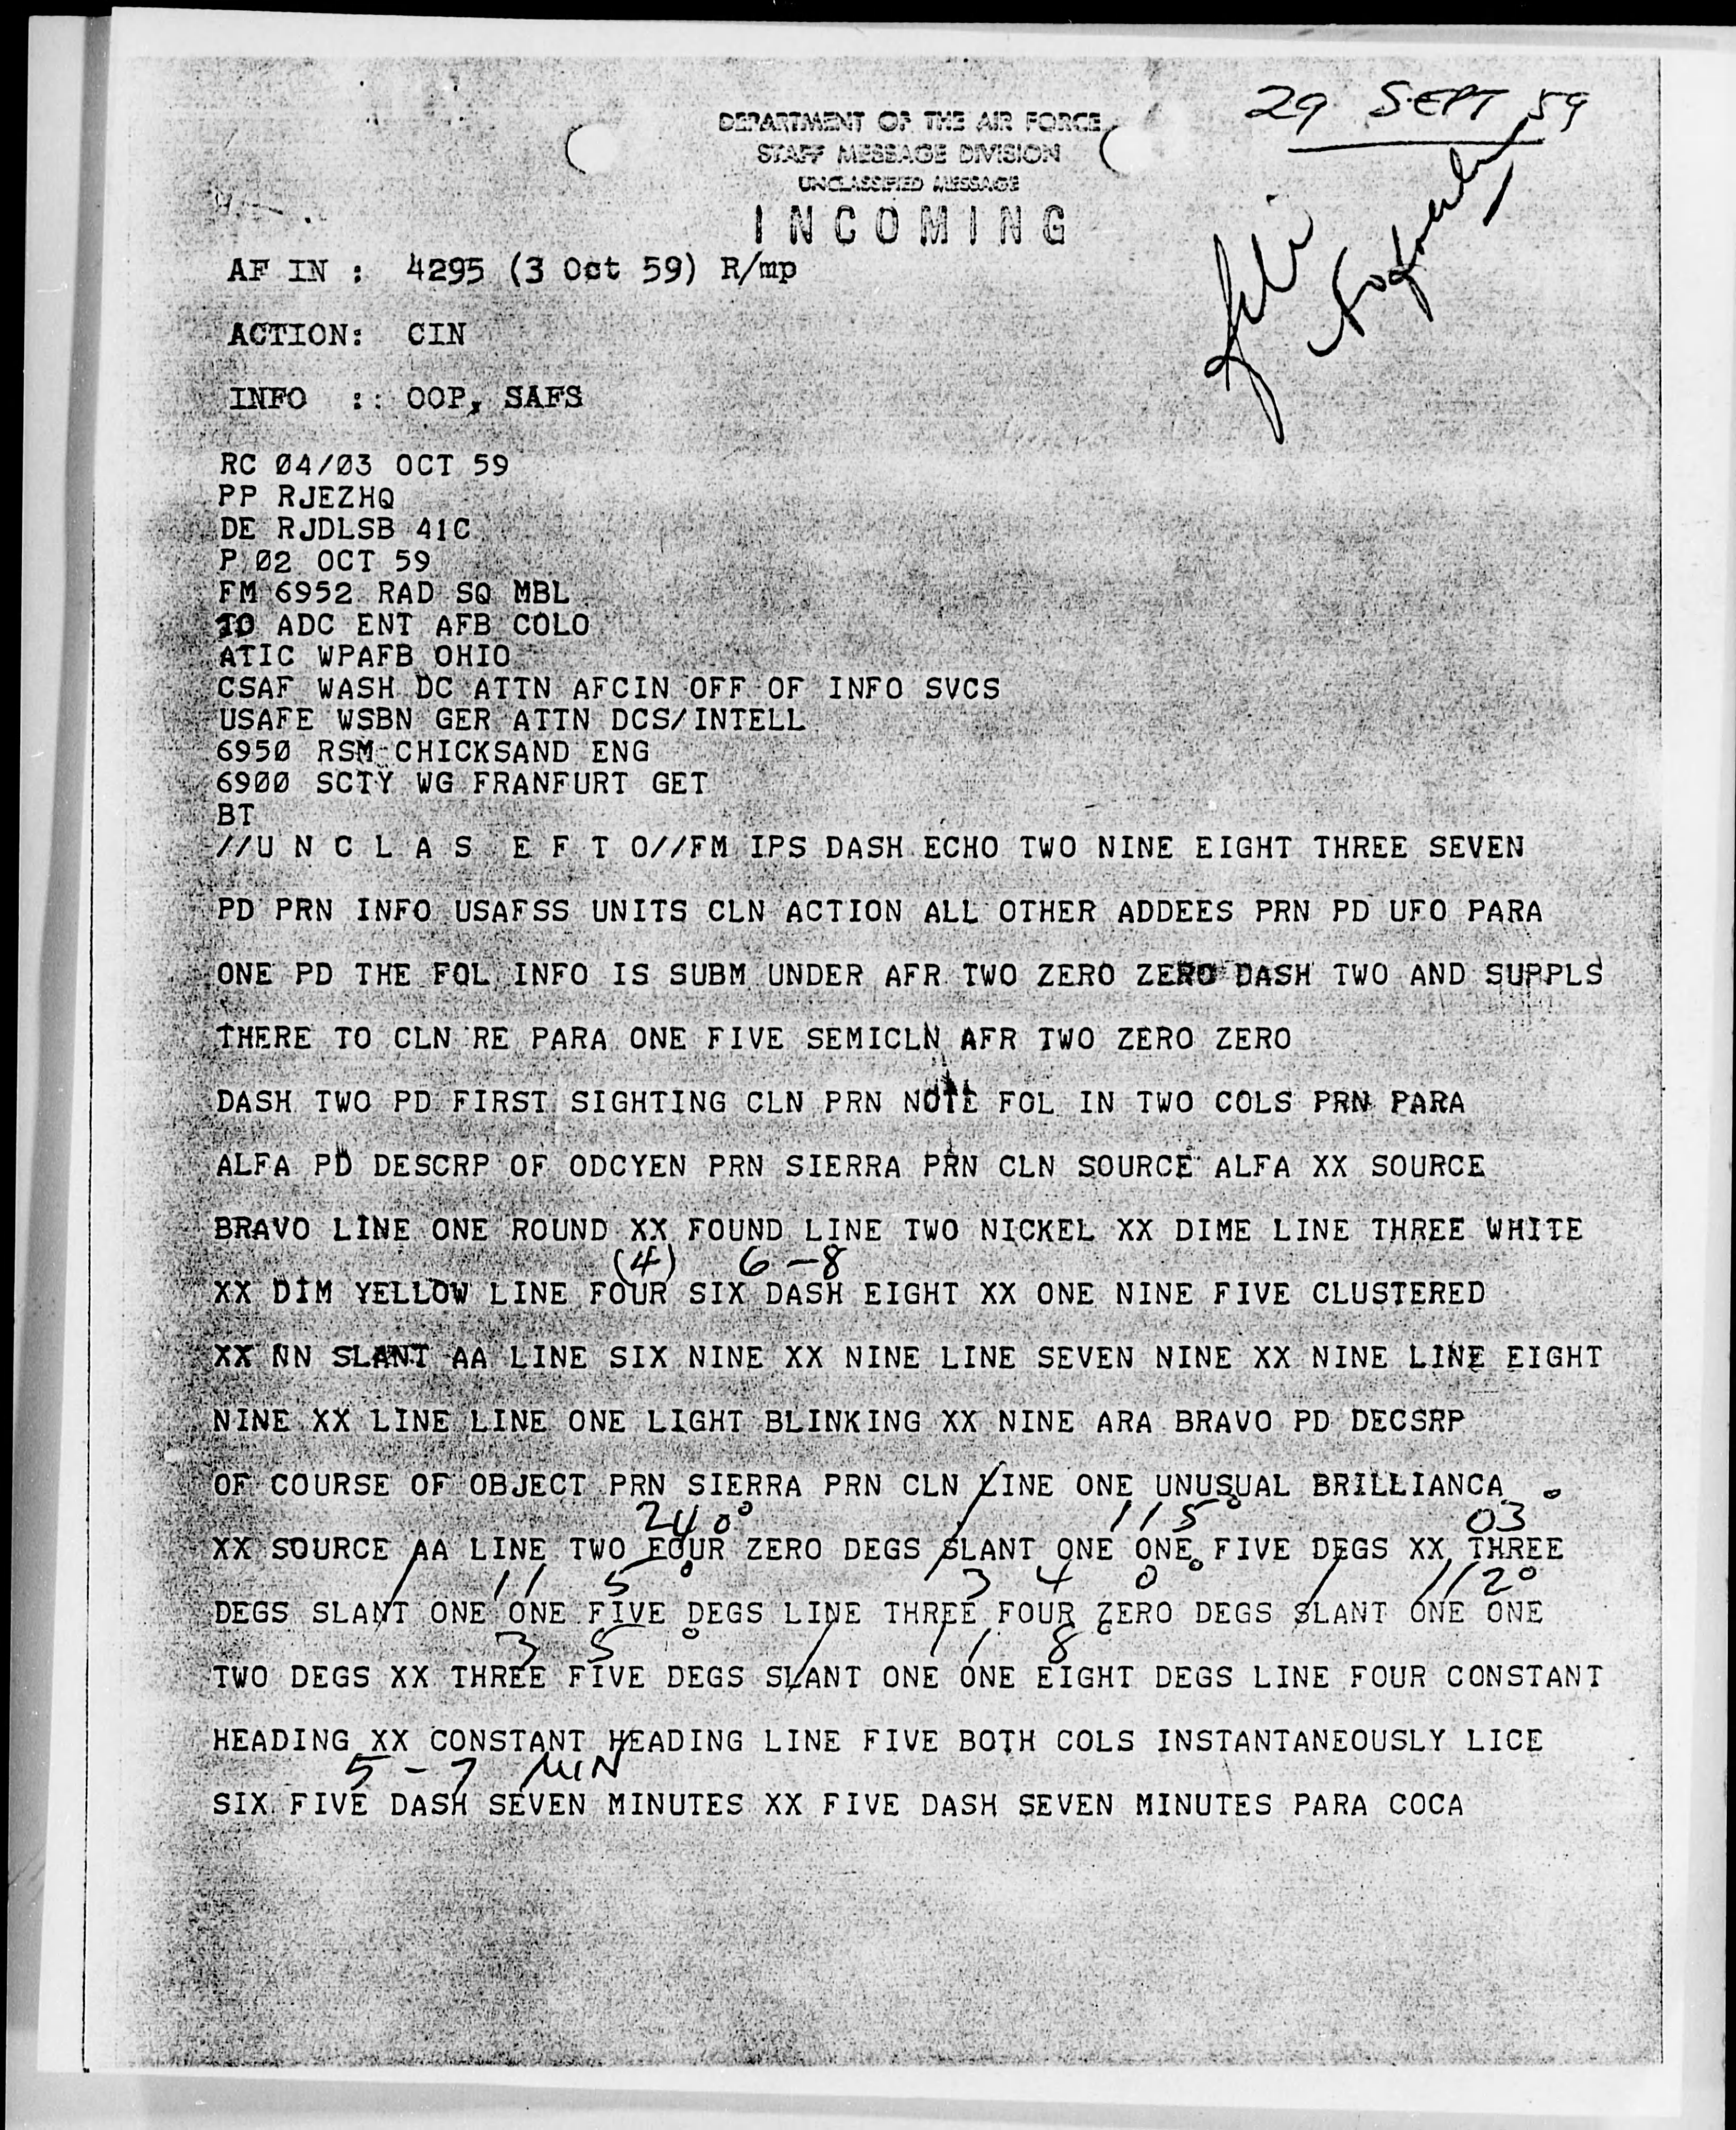 29 SEPT 59
DEPARTMENT OF THE AIR FORCE
STAFF MESSAGE DIVISION
UNCLASSIFIED MESSAGE
INCOMING
AF IN : 4295 (3 Oct 59) R/mp
ACTION: CIN
INFO :: OOP, SAFS
RC Ø4/Ø3 OCT 59
PP RJEZHQ
DE RJDLSB 41C
P Ø2 OCT 59
FM 6952 RAD SQ MBL
TO ADC ENT AFB COLO
ATIC WPAFB OHIO
CSAF WASH DC ATTN AFCIN OFF OF INFO SVCS
USAFE WSBN GER ATTN DCS/INTELL
695Ø RSM CHICKSAND ENG
69ØØ SCTY WG FRANFURT GET
BT
//U N C L A S E F T O//FM IPS DASH ECHO TWO NINE EIGHT THREE SEVEN
PD PRN INFO USAFSS UNITS CLN ACTION ALL OTHER ADDEES PRN PD UFO PARA
ONE PD THE FOL INFO IS SUBM UNDER AFR TWO ZERO ZERO DASH TWO AND SUPPLS
THERE TO CLN RE PARA ONE FIVE SEMICLN AFR TWO ZERO ZERO
DASH TWO PD FIRST SIGHTING CLN PRN NOTE FOL IN TWO COLS PRN PARA
ALFA PD DESCRP OF ODCYEN PRN SIERRA PRN CLN SOURCE ALFA XX SOURCE
BRAVO LINE ONE ROUND XX FOUND LINE TWO NICKEL XX DIME LINE THREE WHITE
(4) 6-8
XX DIM YELLOW LINE FOUR SIX DASH EIGHT XX ONE NINE FIVE CLUSTERED
XX NN SLANT AA LINE SIX NINE XX NINE LINE SEVEN NINE XX NINE LINE EIGHT
NINE XX LINE LINE ONE LIGHT BLINKING XX NINE ARA BRAVO PD DECSRP
OF COURSE OF OBJECT PRN SIERRA PRN CLN LINE ONE UNUSUAL BRILLIANCA
240° / 115° 03°
XX SOURCE AA LINE TWO FOUR ZERO DEGS SLANT ONE ONE FIVE DEGS XX THREE
/ 115° 340° / 112°
DEGS SLANT ONE ONE FIVE DEGS LINE THREE FOUR ZERO DEGS SLANT ONE ONE
35° / 118°
TWO DEGS XX THREE FIVE DEGS SLANT ONE ONE EIGHT DEGS LINE FOUR CONSTANT
HEADING XX CONSTANT HEADING LINE FIVE BOTH COLS INSTANTANEOUSLY LICE
5-7 MIN
SIX FIVE DASH SEVEN MINUTES XX FIVE DASH SEVEN MINUTES PARA COCA